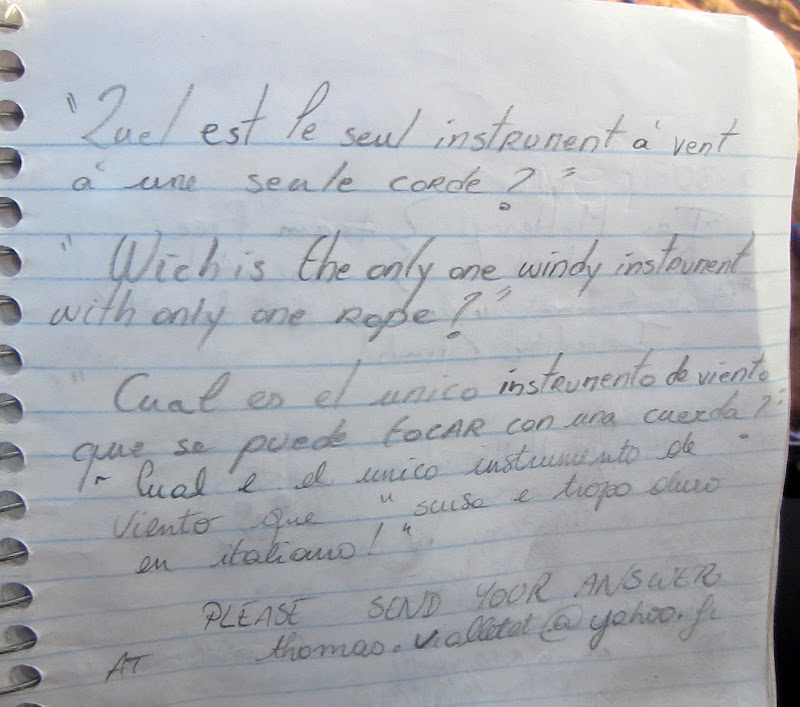 "Quel est le seul instrument à vent
à une seule corde ?"
"Wich is the only one windy instrument
with only one rope ?"
"Cual es el unico instrumento de viento
que se puede tocar con una cuerda ?"
"Cual e el unico instrumento de
viento que "scusa e tropo duro
en italiano!".
PLEASE SEND YOUR ANSWER
AT thomas.vialletet@yahoo.fr